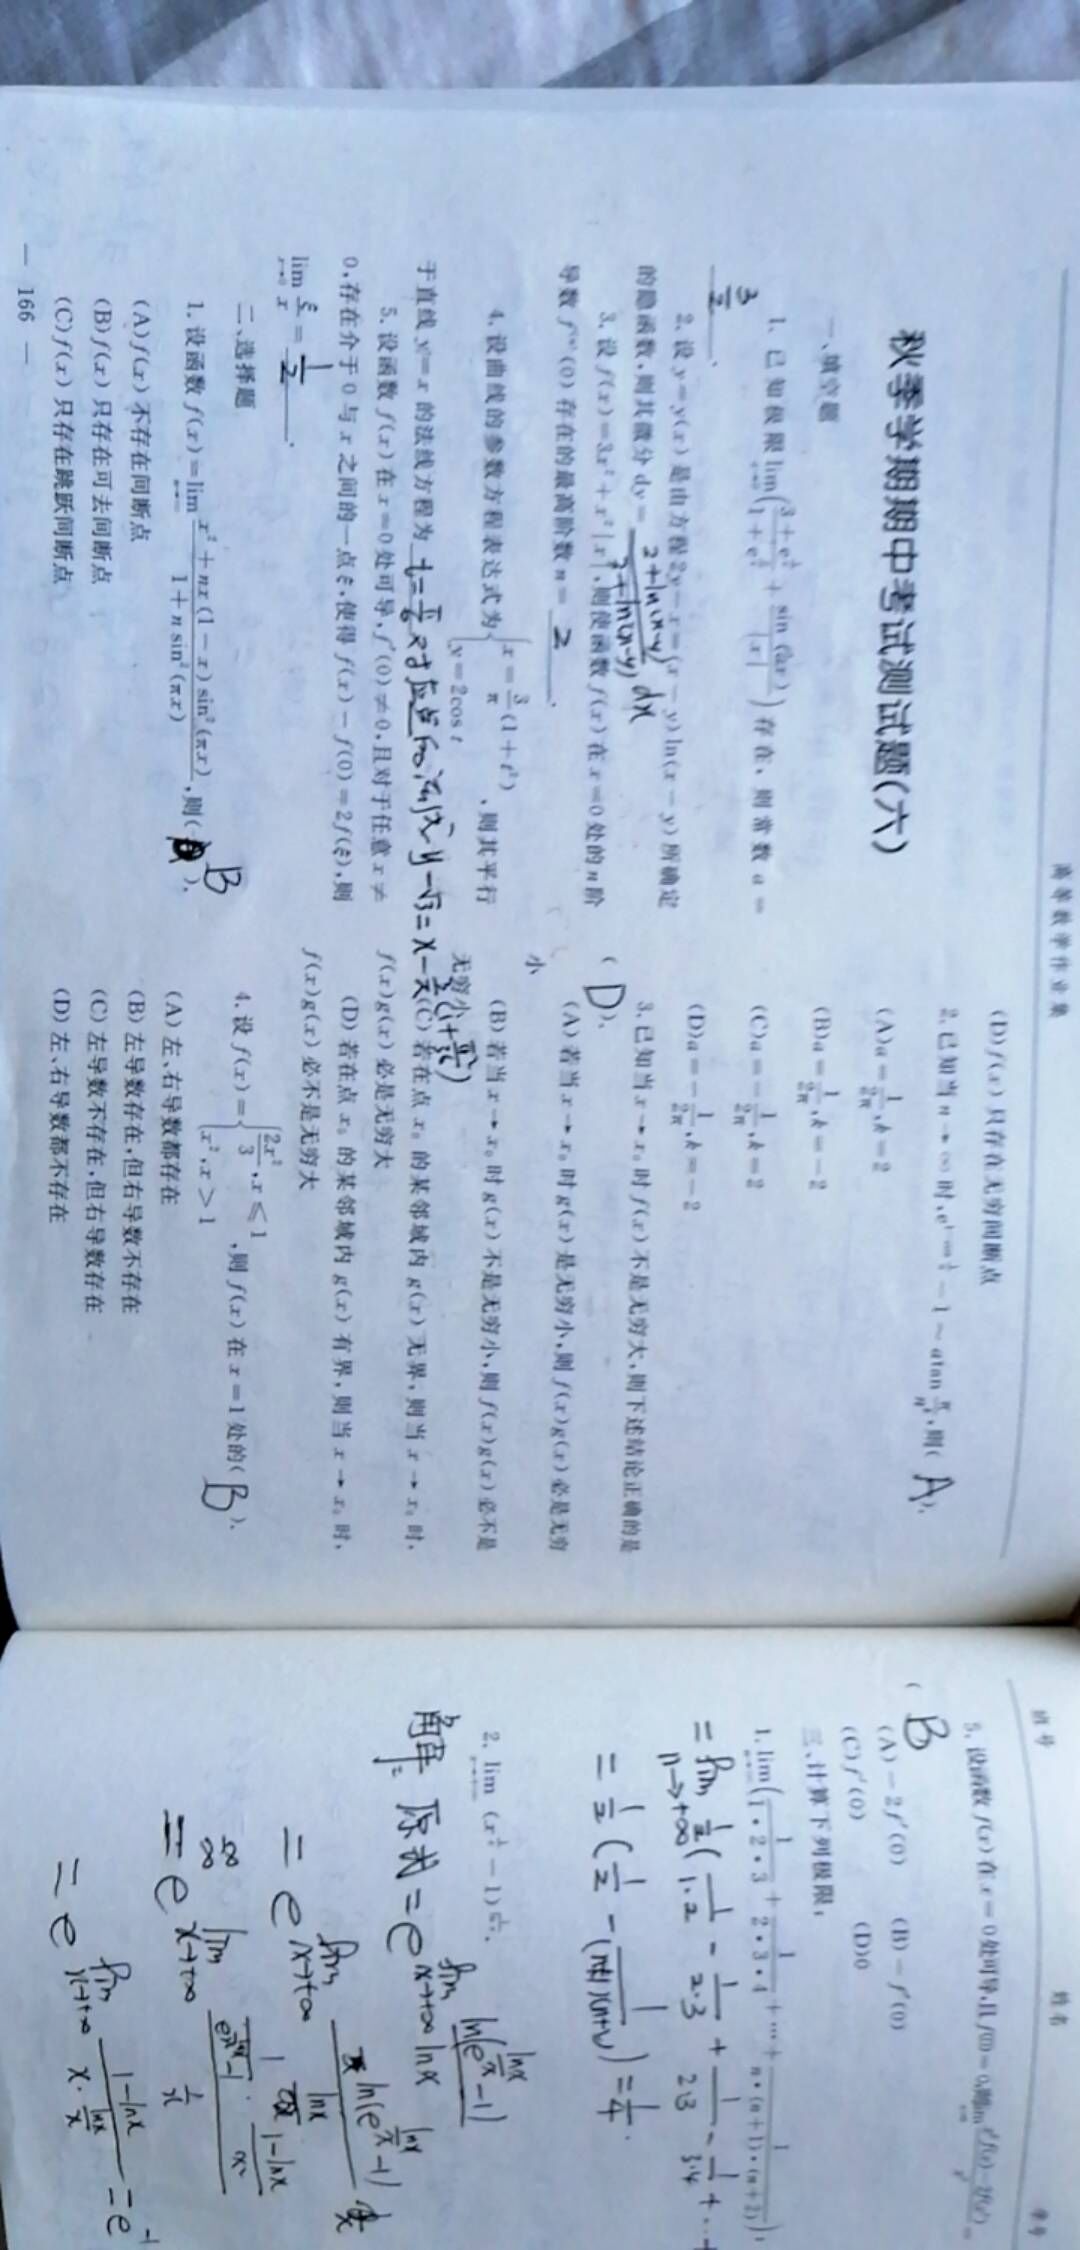 高等数学作业集
秋季学期期中考试测试题(六)
一、填空题
1. 已知极限 lim(3+e^{1/x}/1+e^{2/x} + sin(ax)/|x|) 存在，则常数 a=
3/2.
2. 设 y=y(x) 是由方程 2y-x=(x-y)ln(x-y) 所确定
的隐函数,则其微分 dy= 2+ln(x-y)/3+ln(x-y) dx
3. 设 f(x)=3x²+x²|x|,则使函数 f(x) 在 x=0 处的 n 阶
导数 f⁽ⁿ⁾(0) 存在的最高阶数 n= 2 .
4. 设曲线的参数方程表达式为 { x=3/π(1+t²) y=2cos t ,则其平行
于直线 y=x 的法线方程为 t=π/6 对应点 y-√3=x-3/π(1+π²/36)
5. 设函数 f(x) 在 x=0 处可导,f′(0)≠0,且对于任意 x≠
0,存在介于 0 与 x 之间的一点 ξ,使得 f(x)-f(0)=2f(ξ),则
lim x→0 ξ/x = 1/2 .
二、选择题
1. 设函数 f(x)=lim x²+nx(1-x)sin²(πx)/1+n sin²(πx) ,则( B ).
(A) f(x) 不存在间断点
(B) f(x) 只存在可去间断点
(C) f(x) 只存在跳跃间断点
— 166 —
(D) f(x) 只存在无穷间断点
2. 已知当 n→∞ 时, -1~atan π/nᵏ,则( A ).
(A) a=1/2π,k=2
(B) a=1/2π,k=-2
(C) a=-1/2π,k=2
(D) a=-1/2π,k=-2
3. 已知当 x→x₀ 时 f(x) 不是无穷大,则下述结论正确的是
( D ).
(A) 若当 x→x₀ 时 g(x) 是无穷小,则 f(x)g(x) 必是无穷
小
(B) 若当 x→x₀ 时 g(x) 不是无穷小,则 f(x)g(x) 必不是
无穷小
(C) 若在点 x₀ 的某邻域内 g(x) 无界,则当 x→x₀ 时,
f(x)g(x) 必是无穷大
(D) 若在点 x₀ 的某邻域内 g(x) 有界,则当 x→x₀ 时,
f(x)g(x) 必不是无穷大
4. 设 f(x)={ 2x²/3,x≤1 x²,x>1 ,则 f(x) 在 x=1 处的( B ).
(A) 左、右导数都存在
(B) 左导数存在,但右导数不存在
(C) 左导数不存在,但右导数存在
(D) 左、右导数都不存在
班号 姓名 学号
5. 设函数 f(x) 在 x=0 处可导,且 f(0)=0,则
( B
(A) -2f′(0) (B) -f′(0)
(C) f′(0) (D) 0
三、计算下列极限:
1. lim(1/1·2·3 + 1/2·3·4 + … + 1/n·(n+1)·(n+2));
= lim n→+∞ 1/2(1/1·2 - 1/2·3 + 1/2·3 - 1/3·4 + …
= 1/2(1/2 - 1/(n+1)(n+2)) = 1/4.
2. lim (x^{1/x}-1)^{1/ln x}.
解: 原式 = e^{lim x→+∞ ln(e^{lnx/x}-1)/lnx}
= e^{lim x→+∞
∞/∞ = e^{lim x→+∞
= e^{lim x→+∞ 1-lnx/x·lnx/x} = e⁻¹